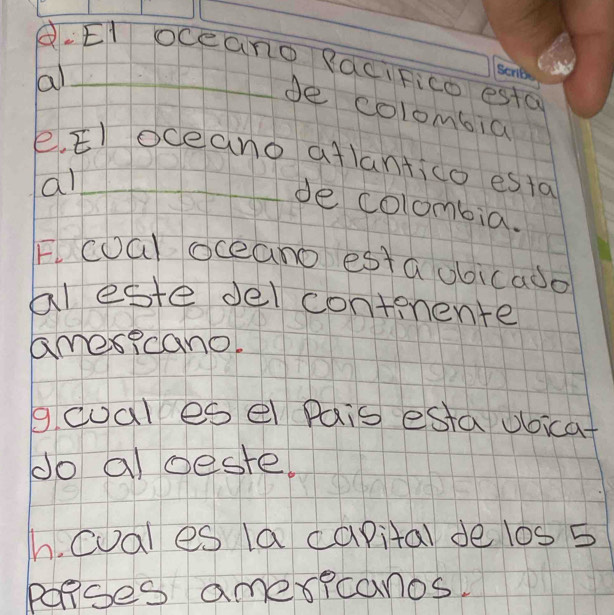 d. El oceano Pacifico esta
al__________de colombia
e. El oceano atlantico esta
al__________de colombia.
F. cual oceano esta ubicado
al este del continente
americano.
g. cual es el Pais esta ubica-
do al oeste.
h. cual es la capital de los 5
paises americanos.